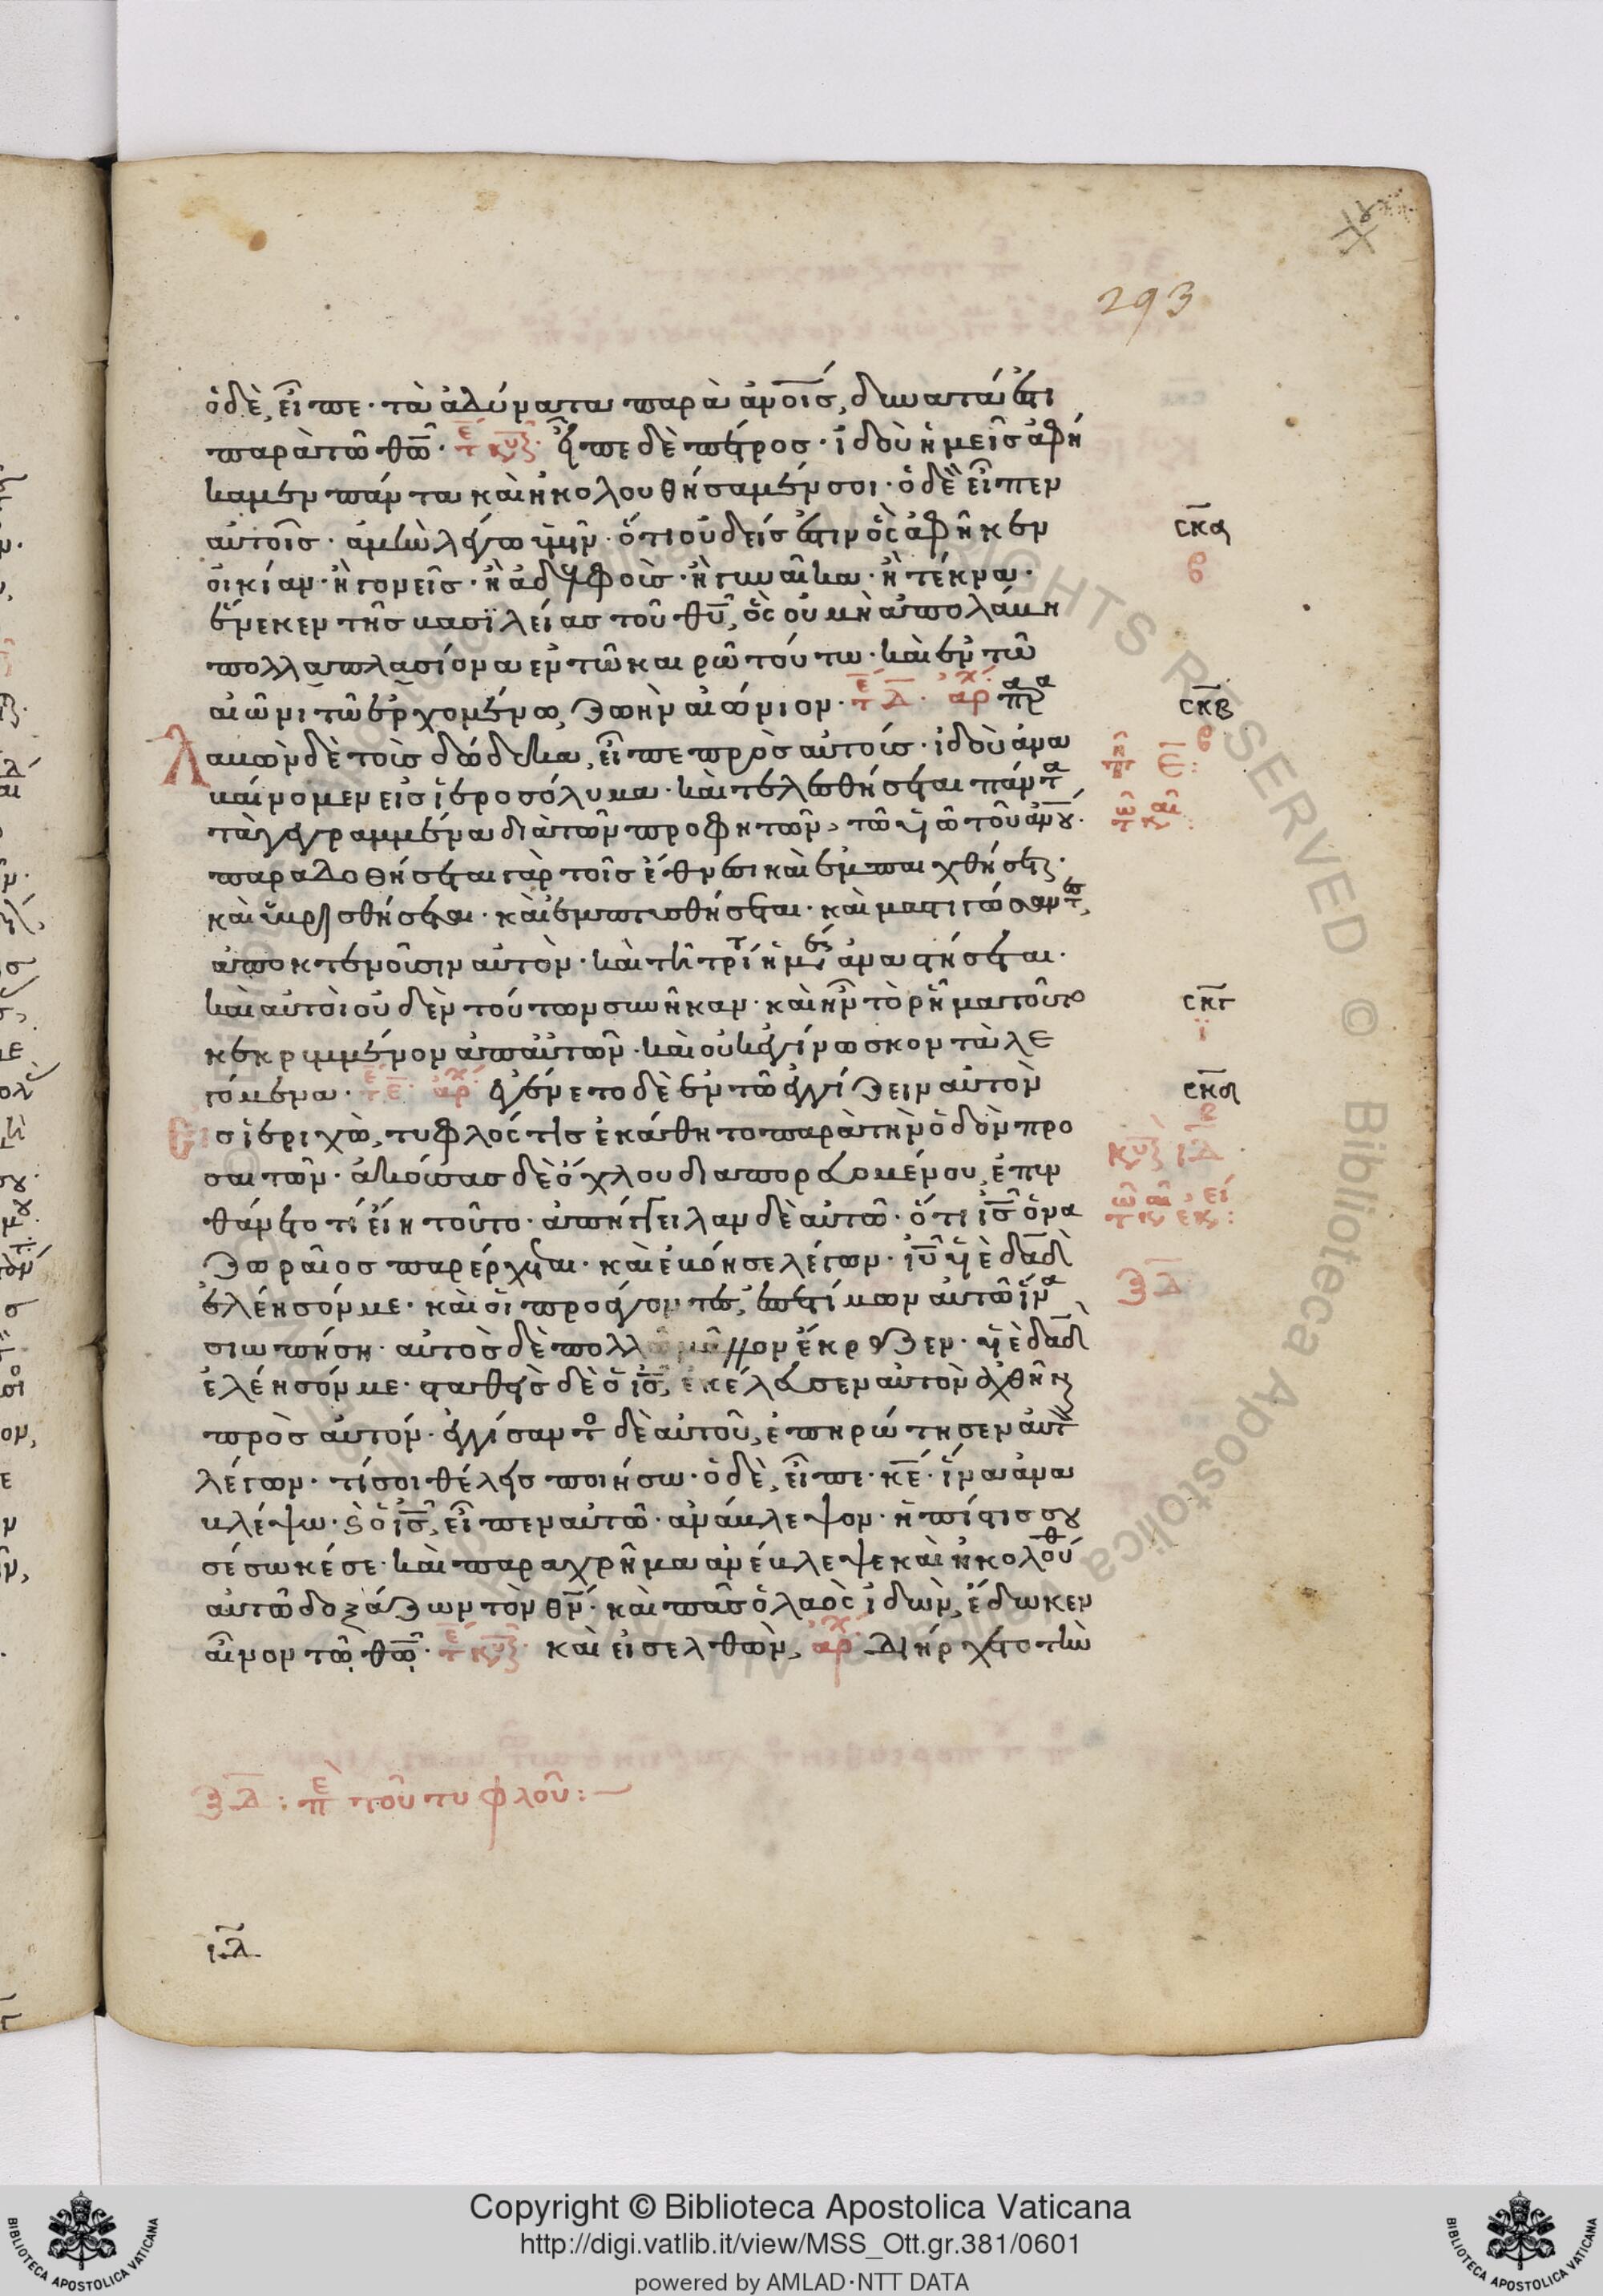 293
ὁ δὲ, εἶπε· τὰ ἀδύνατα παρὰ ἀν̅ο̅ι̅ς, δυνατά ἐστι
παρὰ τῶ θ̅ω̅· τε κυ εἶπε δὲ πέτρος· ἰδοὺ ἡμεῖς ἀφή
καμεν πάντα καὶ ἠκολουθήσαμέν σοι· ὁ δὲ εἶπεν
αὐτοῖς· ἀμὴν λέγω ὑμῖν· ὅτι οὐδείς ἐστιν ὃς ἀφῆκεν
οἰκίαν· ἢ γονεῖς· ἢ ἀδελφοὺς· ἢ γυναῖκα· ἢ τέκνα·
ἕνεκεν τῆς βασϊλείας τοῦ θ̅υ̅, ὃς οὐ μὴ ἀπολάβη
πολλαπλασίονα ἐν τῶ καιρῶ τούτω· καὶ ἐν τῶ
αἰῶνι τῶ ἐρχομένω, ζωὴν αἰώνιον· τε δ̅· αρχ πρα
Λαβὼν δὲ τοὺς δώδεκα, εἶπε πρὸς αὐτούς· ἰδοὺ ἀνα
βαίνομεν εἰς ἱεροσόλυμα· καὶ τελεσθήσεται πάντα
τὰ γεγραμμένα διὰ τῶν προφητῶν, τῶ υἱῶ τοῦ ἀν̅ο̅υ̅·
παραδοθήσεται γὰρ τοῖς ἔθνεσι καὶ ἐμπαιχθήσεται·
καὶ ὑβρισθήσεται· καὶ ἐμπτυσθήσεται· καὶ μαστιγώσαντες,
ἀποκτενοῦσιν αὐτὸν· καὶ τῆ τρίτη ἡμέρα ἀναστήσεται·
καὶ αὐτοὶ οὐδὲν τούτων συνῆκαν· καὶ ἦν τὸ ῥῆμα τοῦτο
κεκρυμμένον ἀπ' αὐτῶν· καὶ οὐκ ἐγίνωσκον τὰ λε
γόμενα· τε ε̅· αρχ ἐγένετο δὲ ἐν τῶ ἐγγίζειν αὐτὸν
εἰς ἱεριχὼ, τυφλός τις ἐκάθητο παρὰ τὴν ὁδὸν προ
σαιτῶν· ἀκούσας δὲ ὄχλου διαπορευομένου, ἐπυν
θάνετο τί εἴη τοῦτο· ἀπήγγειλαν δὲ αὐτῶ· ὅτι ι̅ς̅ ὁ να
ζωραῖος παρέρχεται· καὶ ἐβόησε λέγων· ι̅υ̅ υἱὲ δα̅δ̅
ἐλέησόν με· καὶ οἱ προάγοντες, ἐπετίμων αὐτῶ ἵνα
σιωπήση· αὐτὸς δὲ πολλῶ μᾶλλον ἔκραζεν· υἱὲ δα̅δ̅
ἐλέησόν με· σταθεὶς δὲ ὁ ι̅ς̅, ἐκέλευσεν αὐτὸν ἀχθῆναι
πρὸς αὐτόν· ἐγγίσαντος δὲ αὐτοῦ, ἐπηρώτησεν αὐτὸν
λέγων· τί σοι θέλεις ποιήσω· ὁ δὲ, εἶπε· κ̅ε̅· ἵνα ἀνα
βλέψω· καὶ ὁ ι̅ς̅, εἶπεν αὐτῶ· ἀνάβλεψον· ἡ πίστις σου
σέσωκέ σε· καὶ παραχρῆμα ἀνέβλεψε καὶ ἠκολούθ
αὐτῶ δοξάζων τὸν θ̅ν̅· καὶ πᾶς ὁ λαὸς ἰδὼν, ἔδωκεν
αἶνον τῶ θ̅ω̅· τε κυ καὶ εἰσελθὼν, αρχ διήρχετο τὴν
σ̅κ̅α̅
σ̅κ̅β̅
σ̅κ̅γ̅
ϊ
σ̅κ̅δ̅
β
κυ ι̅δ̅·
ξ̅δ̅
ξ̅δ̅: πε τοῦ τυφλοῦ:
ι̅δ̅
BIBLIOTECA APOSTOLICA VATICANA
Copyright © Biblioteca Apostolica Vaticana
http://digi.vatlib.it/view/MSS_Ott.gr.381/0601
powered by AMLAD·NTT DATA
BIBLIOTECA APOSTOLICA VATICANA